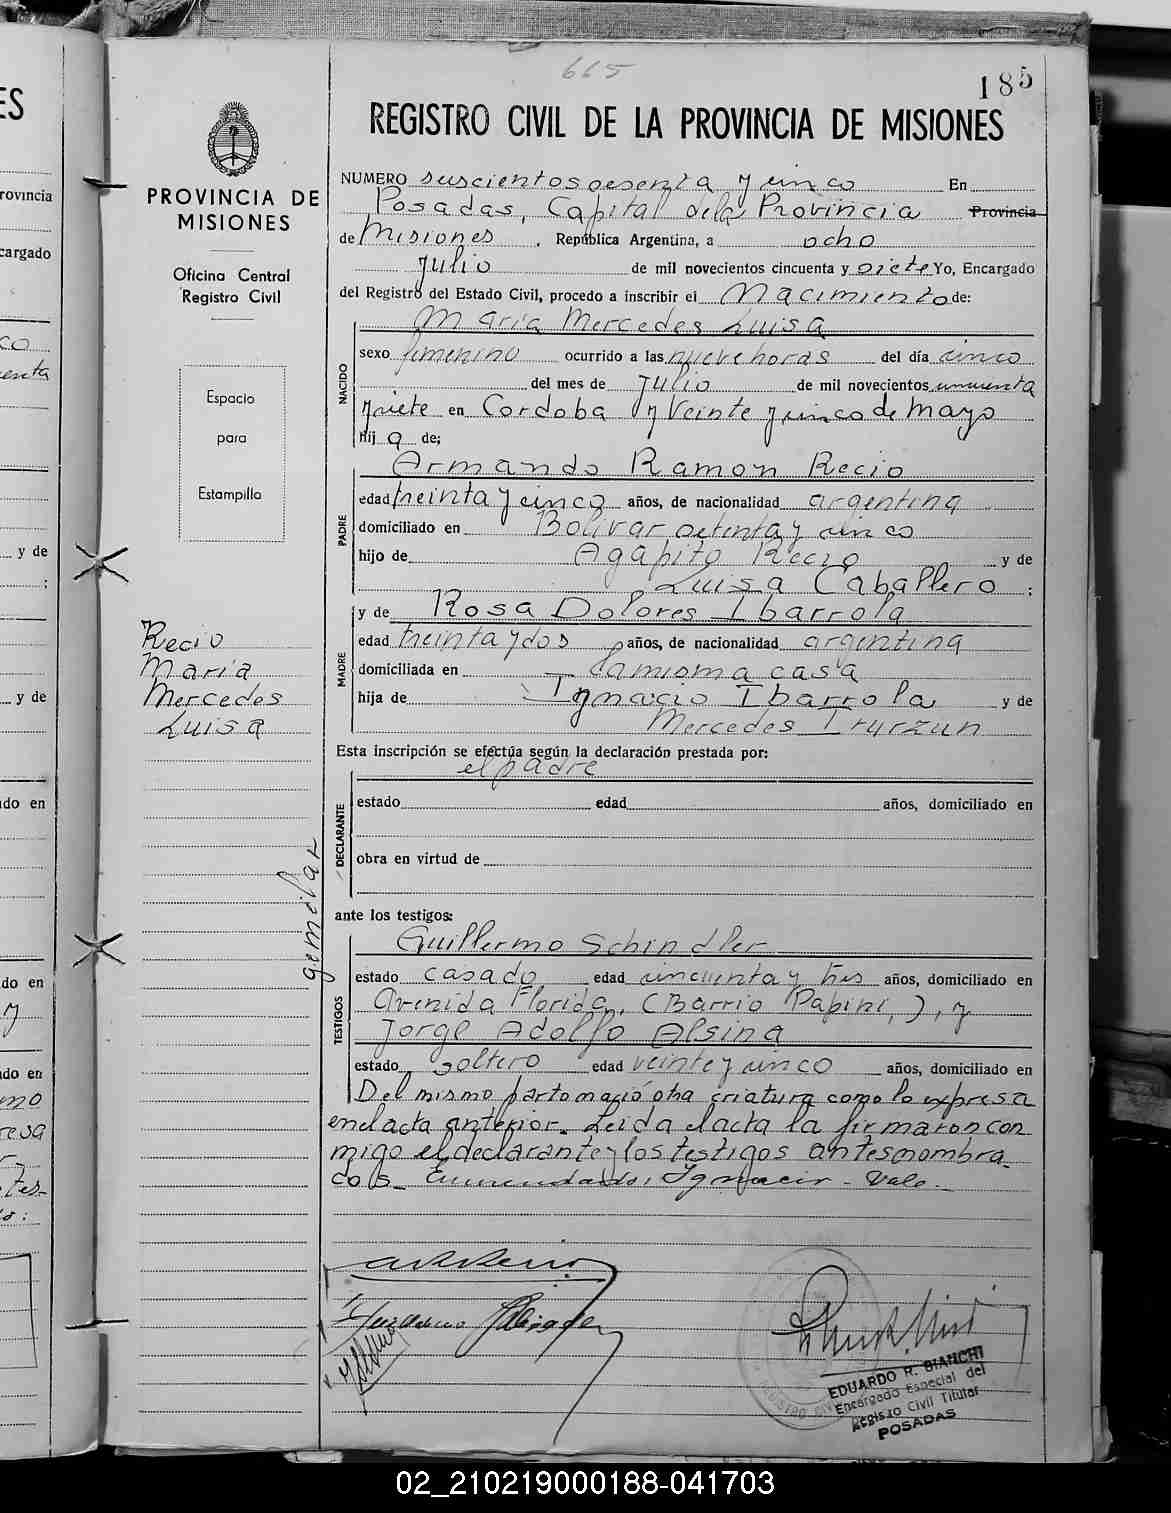 665
185
ES
REGISTRO CIVIL DE LA PROVINCIA DE MISIONES
PROVINCIA DE
MISIONES
Oficina Central
Registro Civil
Espacio
para
Estampilla
Recio
María
Mercedes
Luisa
gemelar
NUMERO suscientos sesenta y cinco En
Posadas, Capital de la Provincia Provincia
de Misiones, República Argentina, a ocho
Julio de mil novecientos cincuenta y siete Yo, Encargado
del Registro del Estado Civil, procedo a inscribir el Nacimiento de:
NACIDO
María Mercedes Luisa
sexo femenino ocurrido a las nueve horas del día cinco
del mes de Julio de mil novecientos cincuenta
y siete en Cordoba y Veinte y cinco de Mayo
hij a de;
PADRE
Armando Ramon Recio
edad treinta y cinco años, de nacionalidad argentina
domiciliado en Bolivar setenta y cinco
hijo de Agapito Recio y de
Luisa Caballero :
MADRE
y de Rosa Dolores Ibarrola
edad treinta y dos años, de nacionalidad argentina
domiciliada en la misma casa
hija de Ignacio Ibarrola y de
Mercedes Iryrzun
Esta inscripción se efectúa según la declaración prestada por:
el padre
DECLARANTE
estado edad años, domiciliado en
obra en virtud de
ante los testigos:
TESTIGOS
Guillermo Schindler
estado casado edad cincuenta y tres años, domiciliado en
Avenida Florida, (Barrio Papini,), y
Jorge Adolfo Alsina
estado soltero edad veinte y cinco años, domiciliado en
Del mismo parto nació otra criatura como lo expresa
en el acta anterior. Leida el acta la firmaron con
migo el declarante y los testigos antes nombra-
dos. Enmendado, Ignacio - Vale.-
EDUARDO R. BIANCHI
Encargado Especial del
Registro Civil Titular
POSADAS
02_210219000188-041703